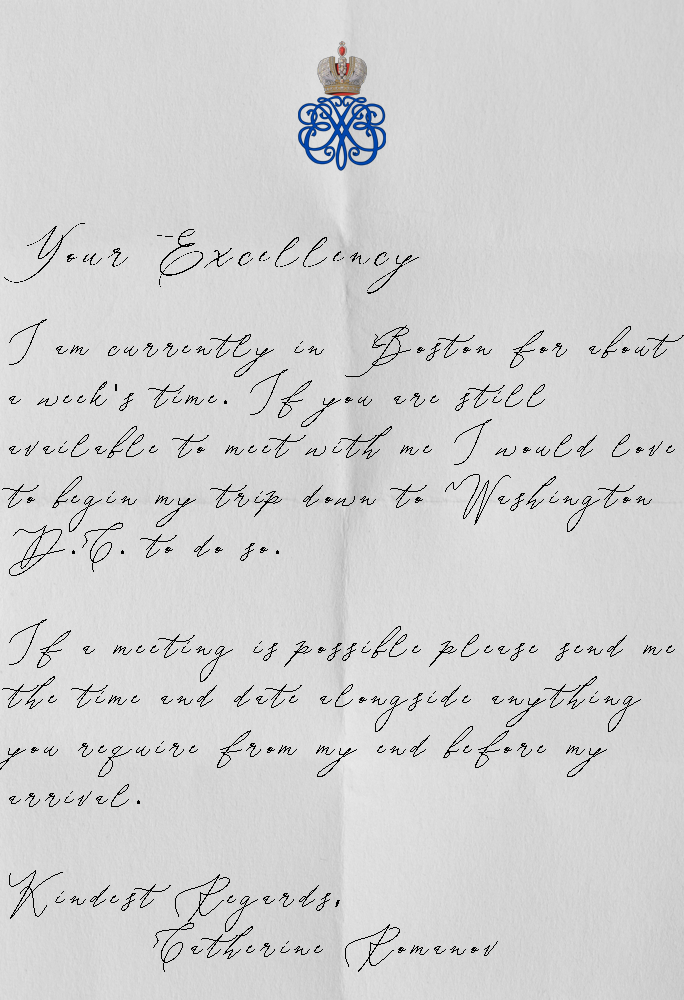 Your Excellency
I am currently in Boston for about
a week's time. If you are still
available to meet with me I would love
to begin my trip down to Washington
D.C. to do so.
If a meeting is possible please send me
the time and date alongside anything
you require from my end before my
arrival.
Kindest Regards,
Catherine Romanov